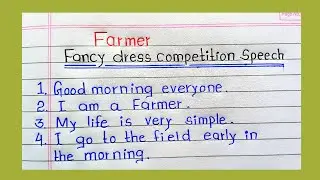 Farmer
Fancy dress competition Speech
1. Good morning everyone.
2. I am a Farmer.
3. My life is very simple.
4. I go to the field early in
the morning.